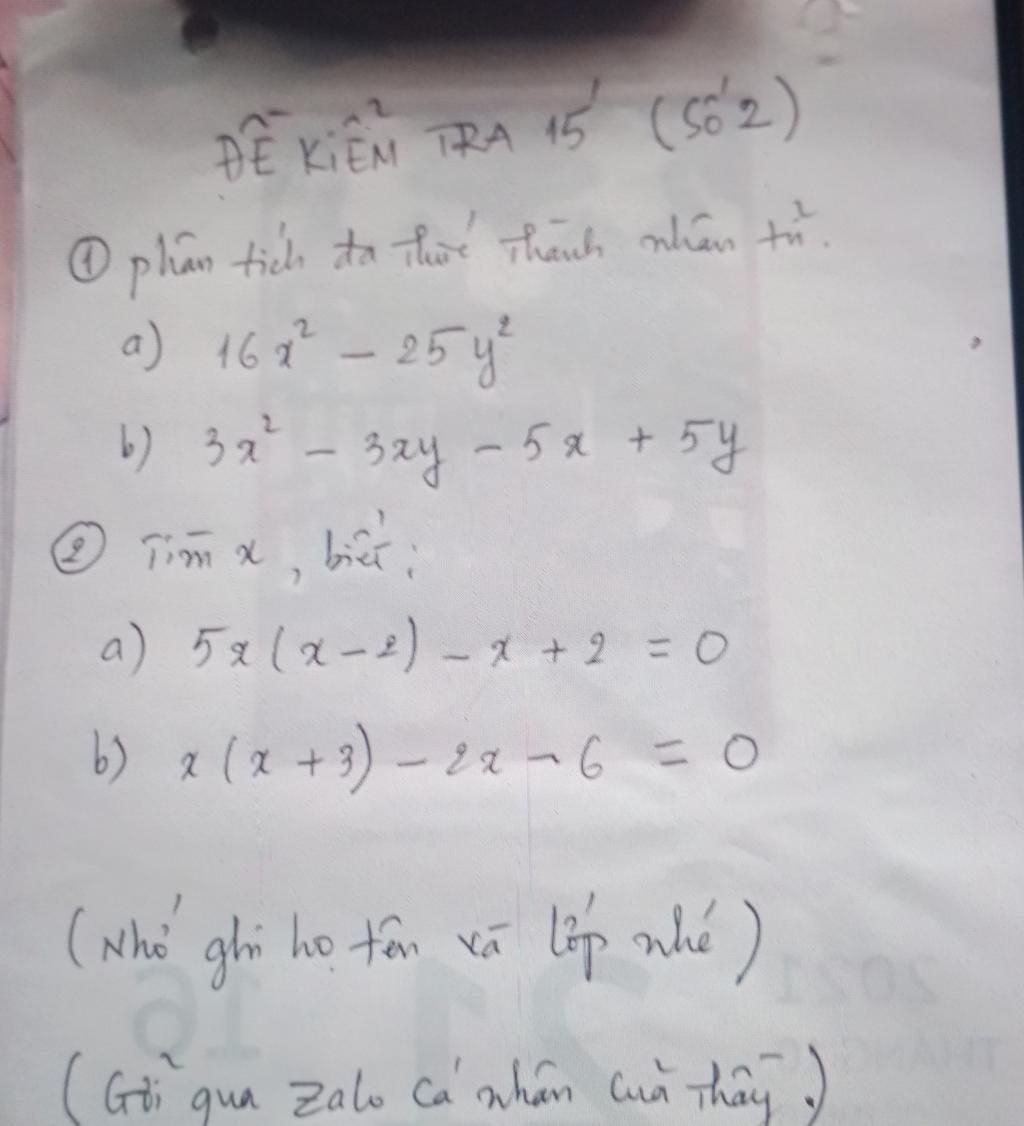 ĐỀ KIỂM TRA 15' (Số 2)
① phân tích đa thức thành nhân tử.
a) 16x² - 25y²
b) 3x² - 3xy - 5x + 5y
② Tìm x, biết:
a) 5x(x-2) - x + 2 = 0
b) x(x+3) - 2x - 6 = 0
(Nhớ ghi họ tên và lớp nhé)
2021
16 21 THÁNG
(Gởi qua Zalo cá nhân của thầy.)